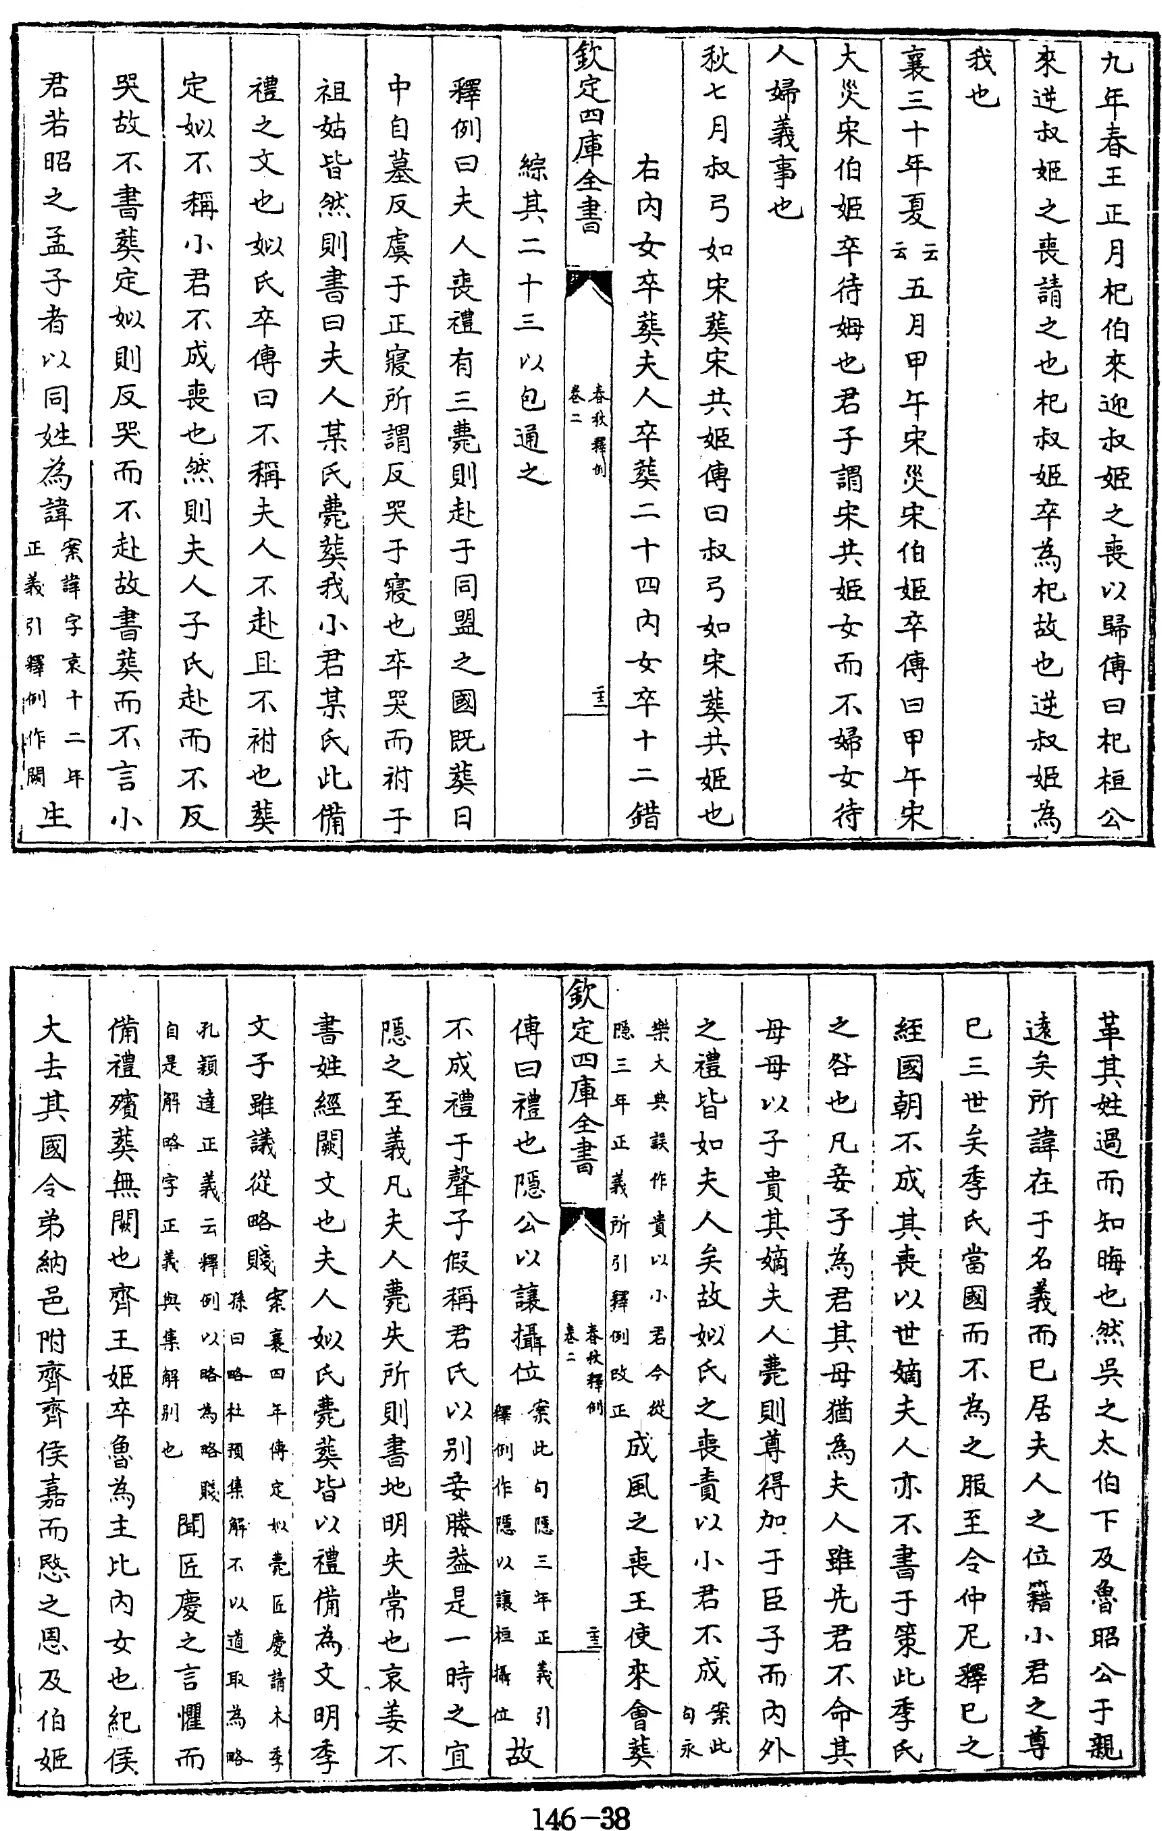 九年春王正月杞伯來迎叔姬之喪以歸傳曰杞桓公
來逆叔姬之喪請之也杞叔姬卒為杞故也逆叔姬為
我也
襄三十年夏云云五月甲午宋災宋伯姬卒傳曰甲午宋
大災宋伯姬卒待姆也君子謂宋共姬女而不婦女待
人婦義事也
秋七月叔弓如宋葬宋共姬傳曰叔弓如宋葬共姬也
右內女卒葬夫人卒葬二十四內女卒十二錯
欽定四庫全書
春秋釋例
卷二
綜其二十三以包通之
釋例曰夫人喪禮有三薨則赴于同盟之國既葬日
中自墓反虞于正寢所謂反哭于寢也卒哭而祔于
祖姑皆然則書曰夫人某氏薨葬我小君某氏此備
禮之文也姒氏卒傳曰不稱夫人不赴且不祔也葬
定姒不稱小君不成喪也然則夫人子氏赴而不反
哭故不書葬定姒則反哭而不赴故書葬而不言小
君若昭之孟子者以同姓為諱
案諱字哀十二年
正義引釋例作闕
生
革其姓過而知晦也然吳之太伯下及魯昭公于親
遠矣所諱在于名義而已居夫人之位籍小君之尊
已三世矣季氏當國而不為之服至令仲尼釋已之
絰國朝不成其喪以世嫡夫人亦不書于策此季氏
之咎也凡妾子為君其母猶為夫人雖先君不命其
母母以子貴其嫡夫人薨則尊得加于臣子而內外
之禮皆如夫人矣故姒氏之喪責以小君不成
案此
句永
樂大典誤作貴以小君今從
隱三年正義所引釋例改正
成風之喪王使來會葬
欽定四庫全書
春秋釋例
卷二
傳曰禮也隱公以讓攝位
案此句隱三年正義引
釋例作隱以讓桓攝位
故
不成禮于聲子假稱君氏以別妾媵葢是一時之宜
隱之至義凡夫人薨失所則書地明失常也哀姜不
書姓經闕文也夫人姒氏薨葬皆以禮備為文明季
文子雖議從略賤
案襄四年傳定姒薨匠慶請木季
孫曰略杜預集解不以道取為略
孔穎達正義云釋例以略為略賤
自是解略字正義與集解別也
聞匠慶之言懼而
備禮殯葬無闕也齊王姬卒魯為主比內女也紀侯
大去其國令弟納邑附齊齊侯嘉而愍之恩及伯姬
146-38